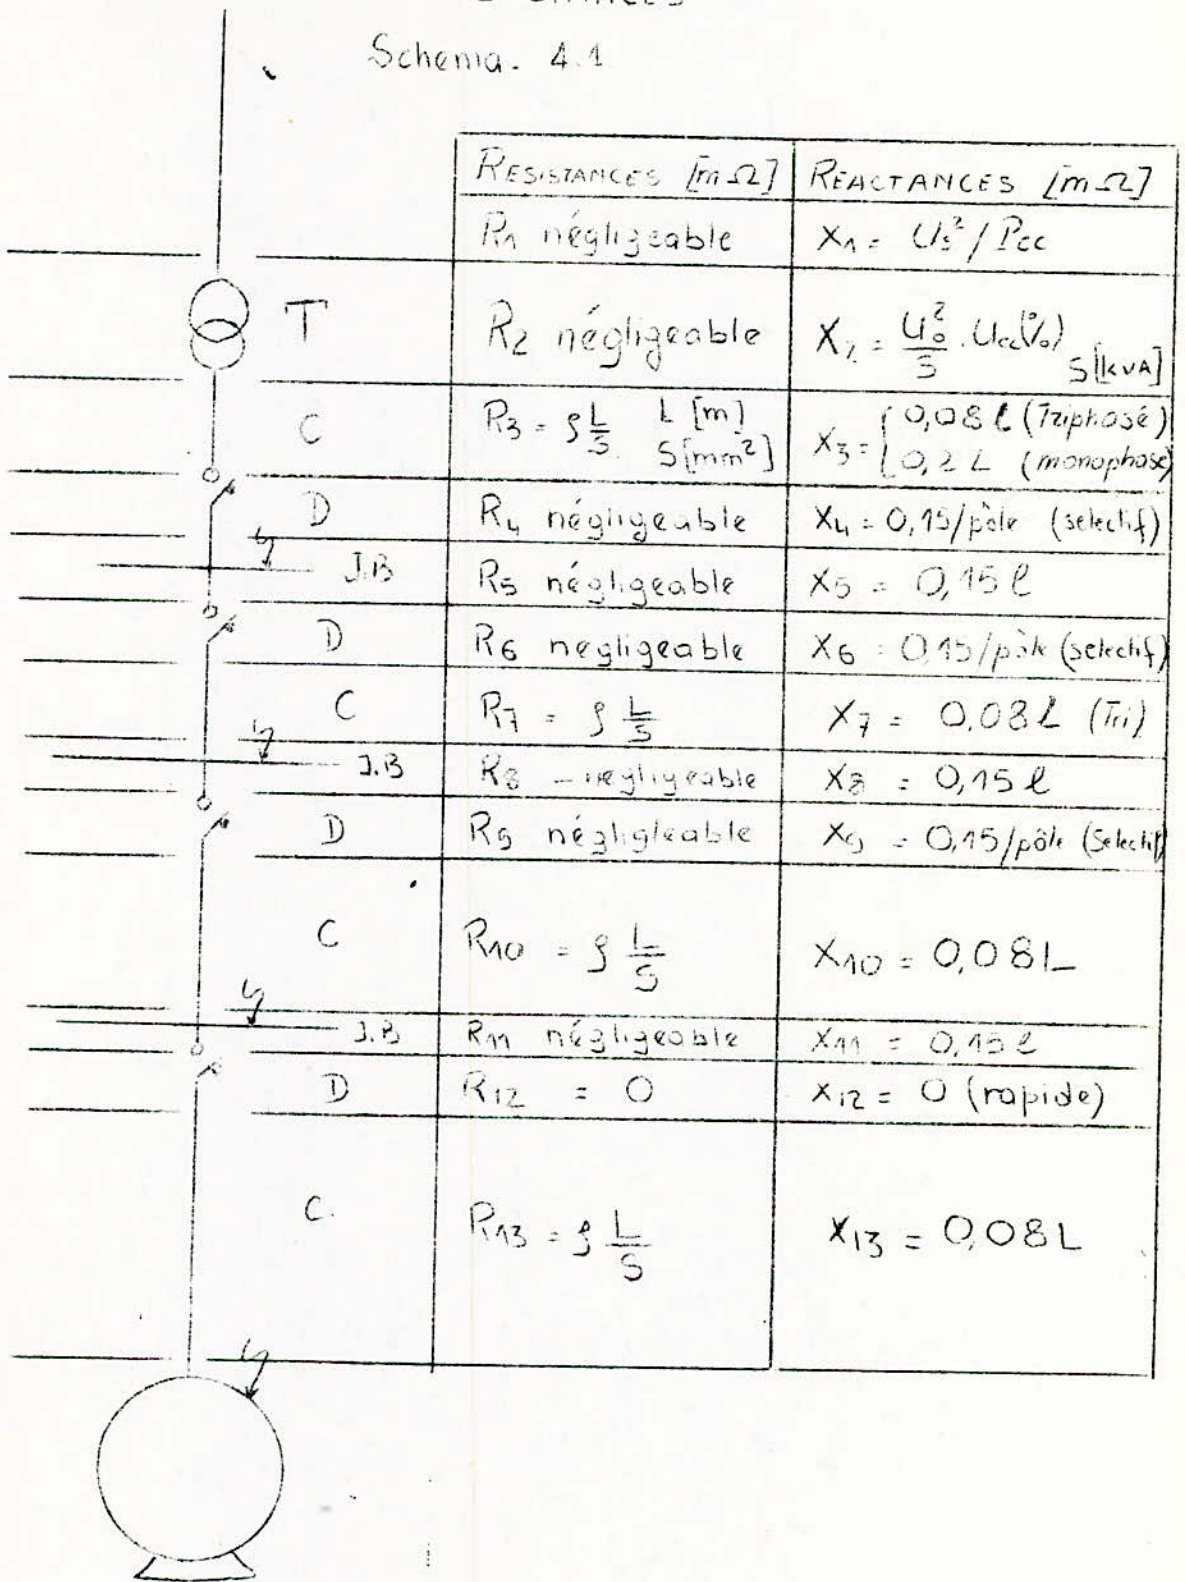 Schema. 4.1
RESISTANCES [mΩ] REACTANCES [mΩ]
R1 négligeable X1 = Us²/Pcc
T R2 négligeable X2 = U0²/S . Ucc(%) S[kVA]
C R3 = ρ L/S L [m] S[mm²] X3 = { 0,08 l (Triphasé) 0,2 L (monophasé)
D R4 négligeable X4 = 0,15/pôle (selectif)
J.B R5 négligeable X5 = 0,15 l
D R6 negligeable X6 = 0,15/pôle (selectif)
C R7 = ρ L/S X7 = 0,08 L (Tri)
J.B R8 - negligeable X8 = 0,15 l
D R9 négligleable X9 = 0,15/pôle (Selectif)
C R10 = ρ L/S X10 = 0,08 L
J.B R11 négligeable X11 = 0,15 l
D R12 = 0 X12 = 0 (rapide)
C. R13 = ρ L/S X13 = 0,08 L